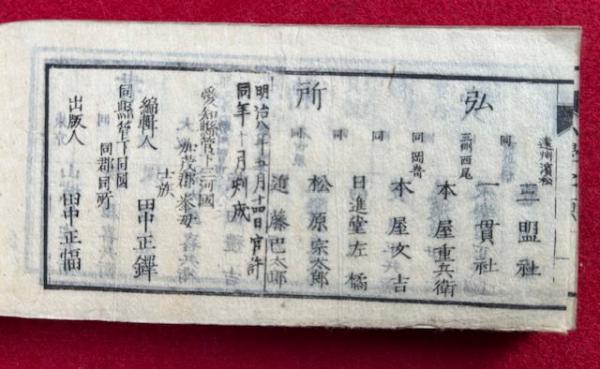 弘
所
遠州濱松
三盟社
同
一貫社
三州西尾
本屋重兵衛
同岡嵜
本屋文吉
同
日進堂左橘
同
松原宗太郎
同
近藤巴太郎
明治八年五月十四日官許
同年十月刻成
愛知縣管下三河國
加茂郡挙母
士族
編輯人
田中正鐸
同縣管下同國
同郡同所
出版人
田中正幅